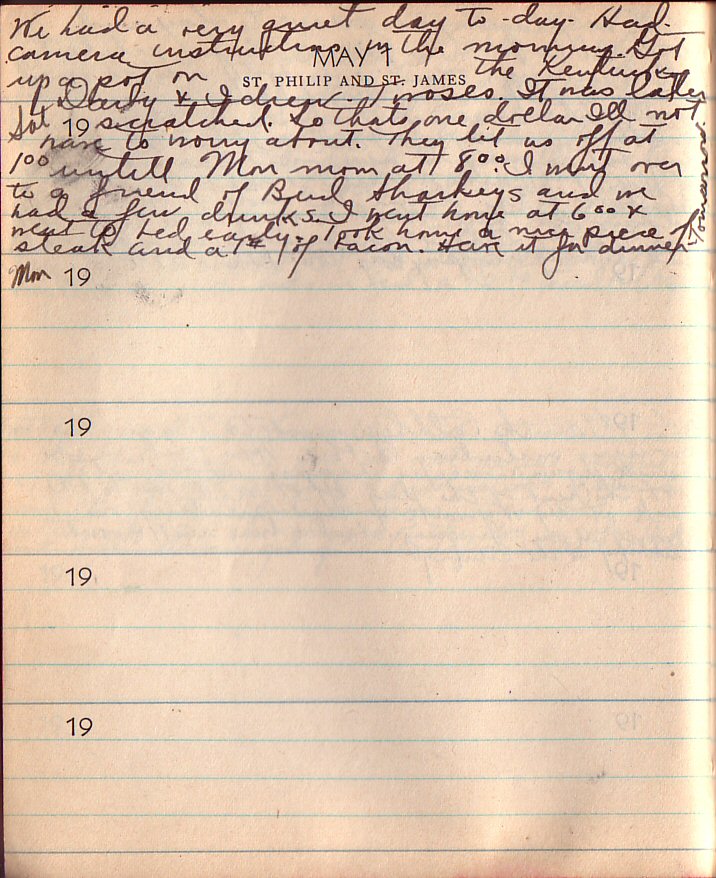 We had a very quiet day to-day. Had
camera instruction in the morning. Got
MAY 1
up a pot on the Kentucky
ST. PHILIP AND ST. JAMES
Darby & I drew moses. It was later
Sat 19 scratched. So thats one dollar Ill not
have to worry about. They let us off at
1⁰⁰ untill Mon morn at 8⁰⁰. I went over
to a friend of Bud Sharkeys and we
had a few drinks. I went home at 6⁰⁰ &
went to bed early. Took home a nice piece of
steak and a 1# of bacon. Have it for dinner
tomorrow.
Mon 19
19
19
19